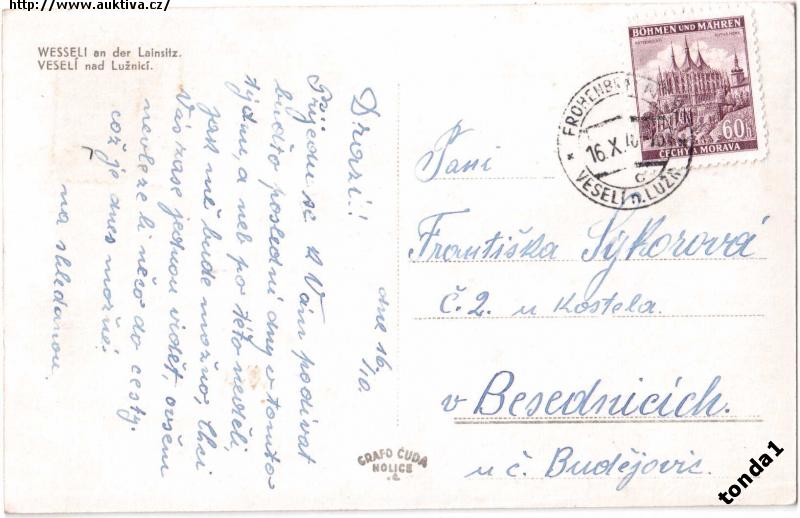 http://www.auktiva.cz/
WESSELI an der Lainsitz.
VESELÍ nad Lužnicí.
Drazí!
dne 16./10.
Přijedu se k Vám podívat
buďto poslední dny v tomto
týdnu, a neb po této neděli,
jak mě bude možno, Chci
Vás zase jednou vidět, ovšem
nevleze li něco do cesty.
což je dnes možné.
na shledanou.
BÖHMEN UND MÄHREN
60h
ČECHY A MORAVA
16.X.
VESELÍ n. LUŽN.
Paní
Františka Sýkorová
č. 2. u Kostela.
v Besednicích.
u č. Budějovic.
GRAFO ČUDA
HOLICE
.č.
tonda1